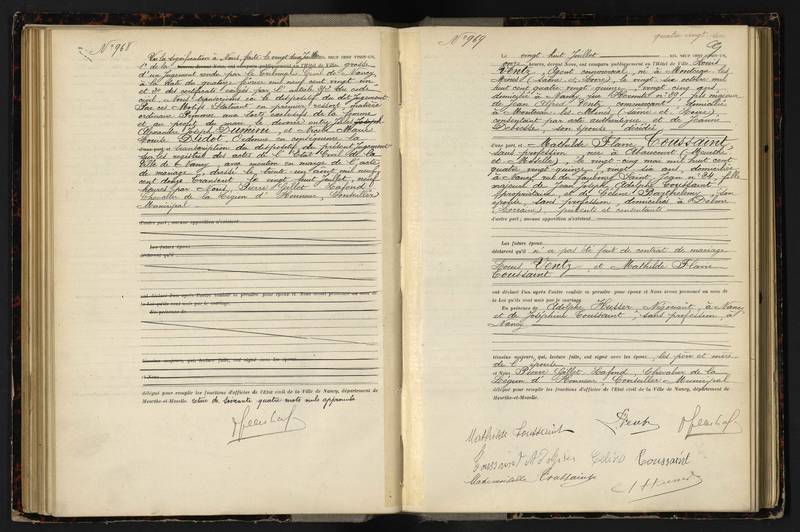 N° 968
Vu la signification à Nous faite le vingt huit Juillet, MIL NEUF CENT VINGT-UN,
1° de la grosse
d'un Jugement rendu par le Tribunal Civil de Nancy,
à la date du quatorze février mil neuf cent vingt un
et 2° des certificats exigés par l'article du code
civil Nous transcrivons ici le dispositif du dit Jugement
Par ces Motifs Statuant en premier ressort, matière
ordinaire Prononce aux torts exclusifs de la femme
et au profit du mari le divorce entre
Alexandre Joseph et Marie
Ordonne en conséquence la
transcription du dispositif du présent Jugement
sur les registres des actes de l'Etat Civil de la
Ville de Nancy, avec mention en marge de l'acte
de mariage y dressé le trente un août mil neuf
cent douze Transcrit le vingt huit juillet, neuf
heures par Nous, Pierre Gillot Lafond,
Chevalier de la Légion d'Honneur, Conseiller
Municipal
d'autre part; aucune opposition n'existant.
Les futurs époux
déclarent qu'il
ont déclaré l'un après l'autre vouloir se prendre pour époux et Nous avons prononcé au nom de
la Loi qu'ils sont unis par le mariage.
En présence de
témoins majeurs, qui, lecture faite, ont signé avec les époux
et Nous
délégué pour remplir les fonctions d'officier de l'Etat civil de la Ville de Nancy, département de
Meurthe-et-Moselle. soixante quatre mots nuls approuvés
N° 969
quatre vingt
Le vingt huit Juillet MIL NEUF CENT VINGT-UN,
onze heures, devant Nous, ont comparu publiquement en l'Hôtel de Ville Louis
Ventz, Agent commercial, né à Montceau les
Mines (Saône et Loire), le vingt six octobre mil
huit cent quatre vingt quinze, vingt cinq ans,
domicilié à Nancy, rue, fils majeur
de Jean Alfred Ventz, commerçant, domicilié
à Montceau les Mines (Saône et Loire),
consentant par acte authentique et de Jeanne
son épouse, décédée
d'une part, et Mathilde Flavie Toussaint
sans profession, née à (Meurthe
et Moselle), le vingt cinq mai mil huit cent
quatre vingt quinze, vingt six ans, domiciliée
à Nancy, rue du faubourg Saint Jean n° 24, fille
majeure de Jean Joseph Adolphe Toussaint,
propriétaire et de Barthélemy, son
épouse, sans profession, domiciliés à Delme
(Lorraine), présents et consentants
d'autre part; aucune opposition n'existant.
Les futurs époux
déclarent qu'il n'a pas été fait de contrat de mariage
Louis Ventz et Mathilde Flavie
Toussaint
ont déclaré l'un après l'autre vouloir se prendre pour époux et Nous avons prononcé au nom de
la Loi qu'ils sont unis par le mariage.
En présence de Adolphe Husser, Négociant, à Nancy
et de Joséphine Toussaint, sans profession, à
Nancy
témoins majeurs, qui, lecture faite, ont signé avec les époux, les père et mère
de l'épouse
et Nous Pierre Gillot Lafond, Chevalier de la
Légion d'Honneur, Conseiller Municipal
délégué pour remplir les fonctions d'officier de l'Etat civil de la Ville de Nancy, département de
Meurthe-et-Moselle.
Mathilde Toussaint
Toussaint Adolphe Toussaint
Mademoiselle Toussaint